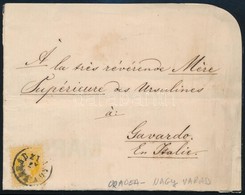 A
la très révérende Mère
Supérieure des Ursulines
à
Gavardo.
En Italie.
NAGY VARAD